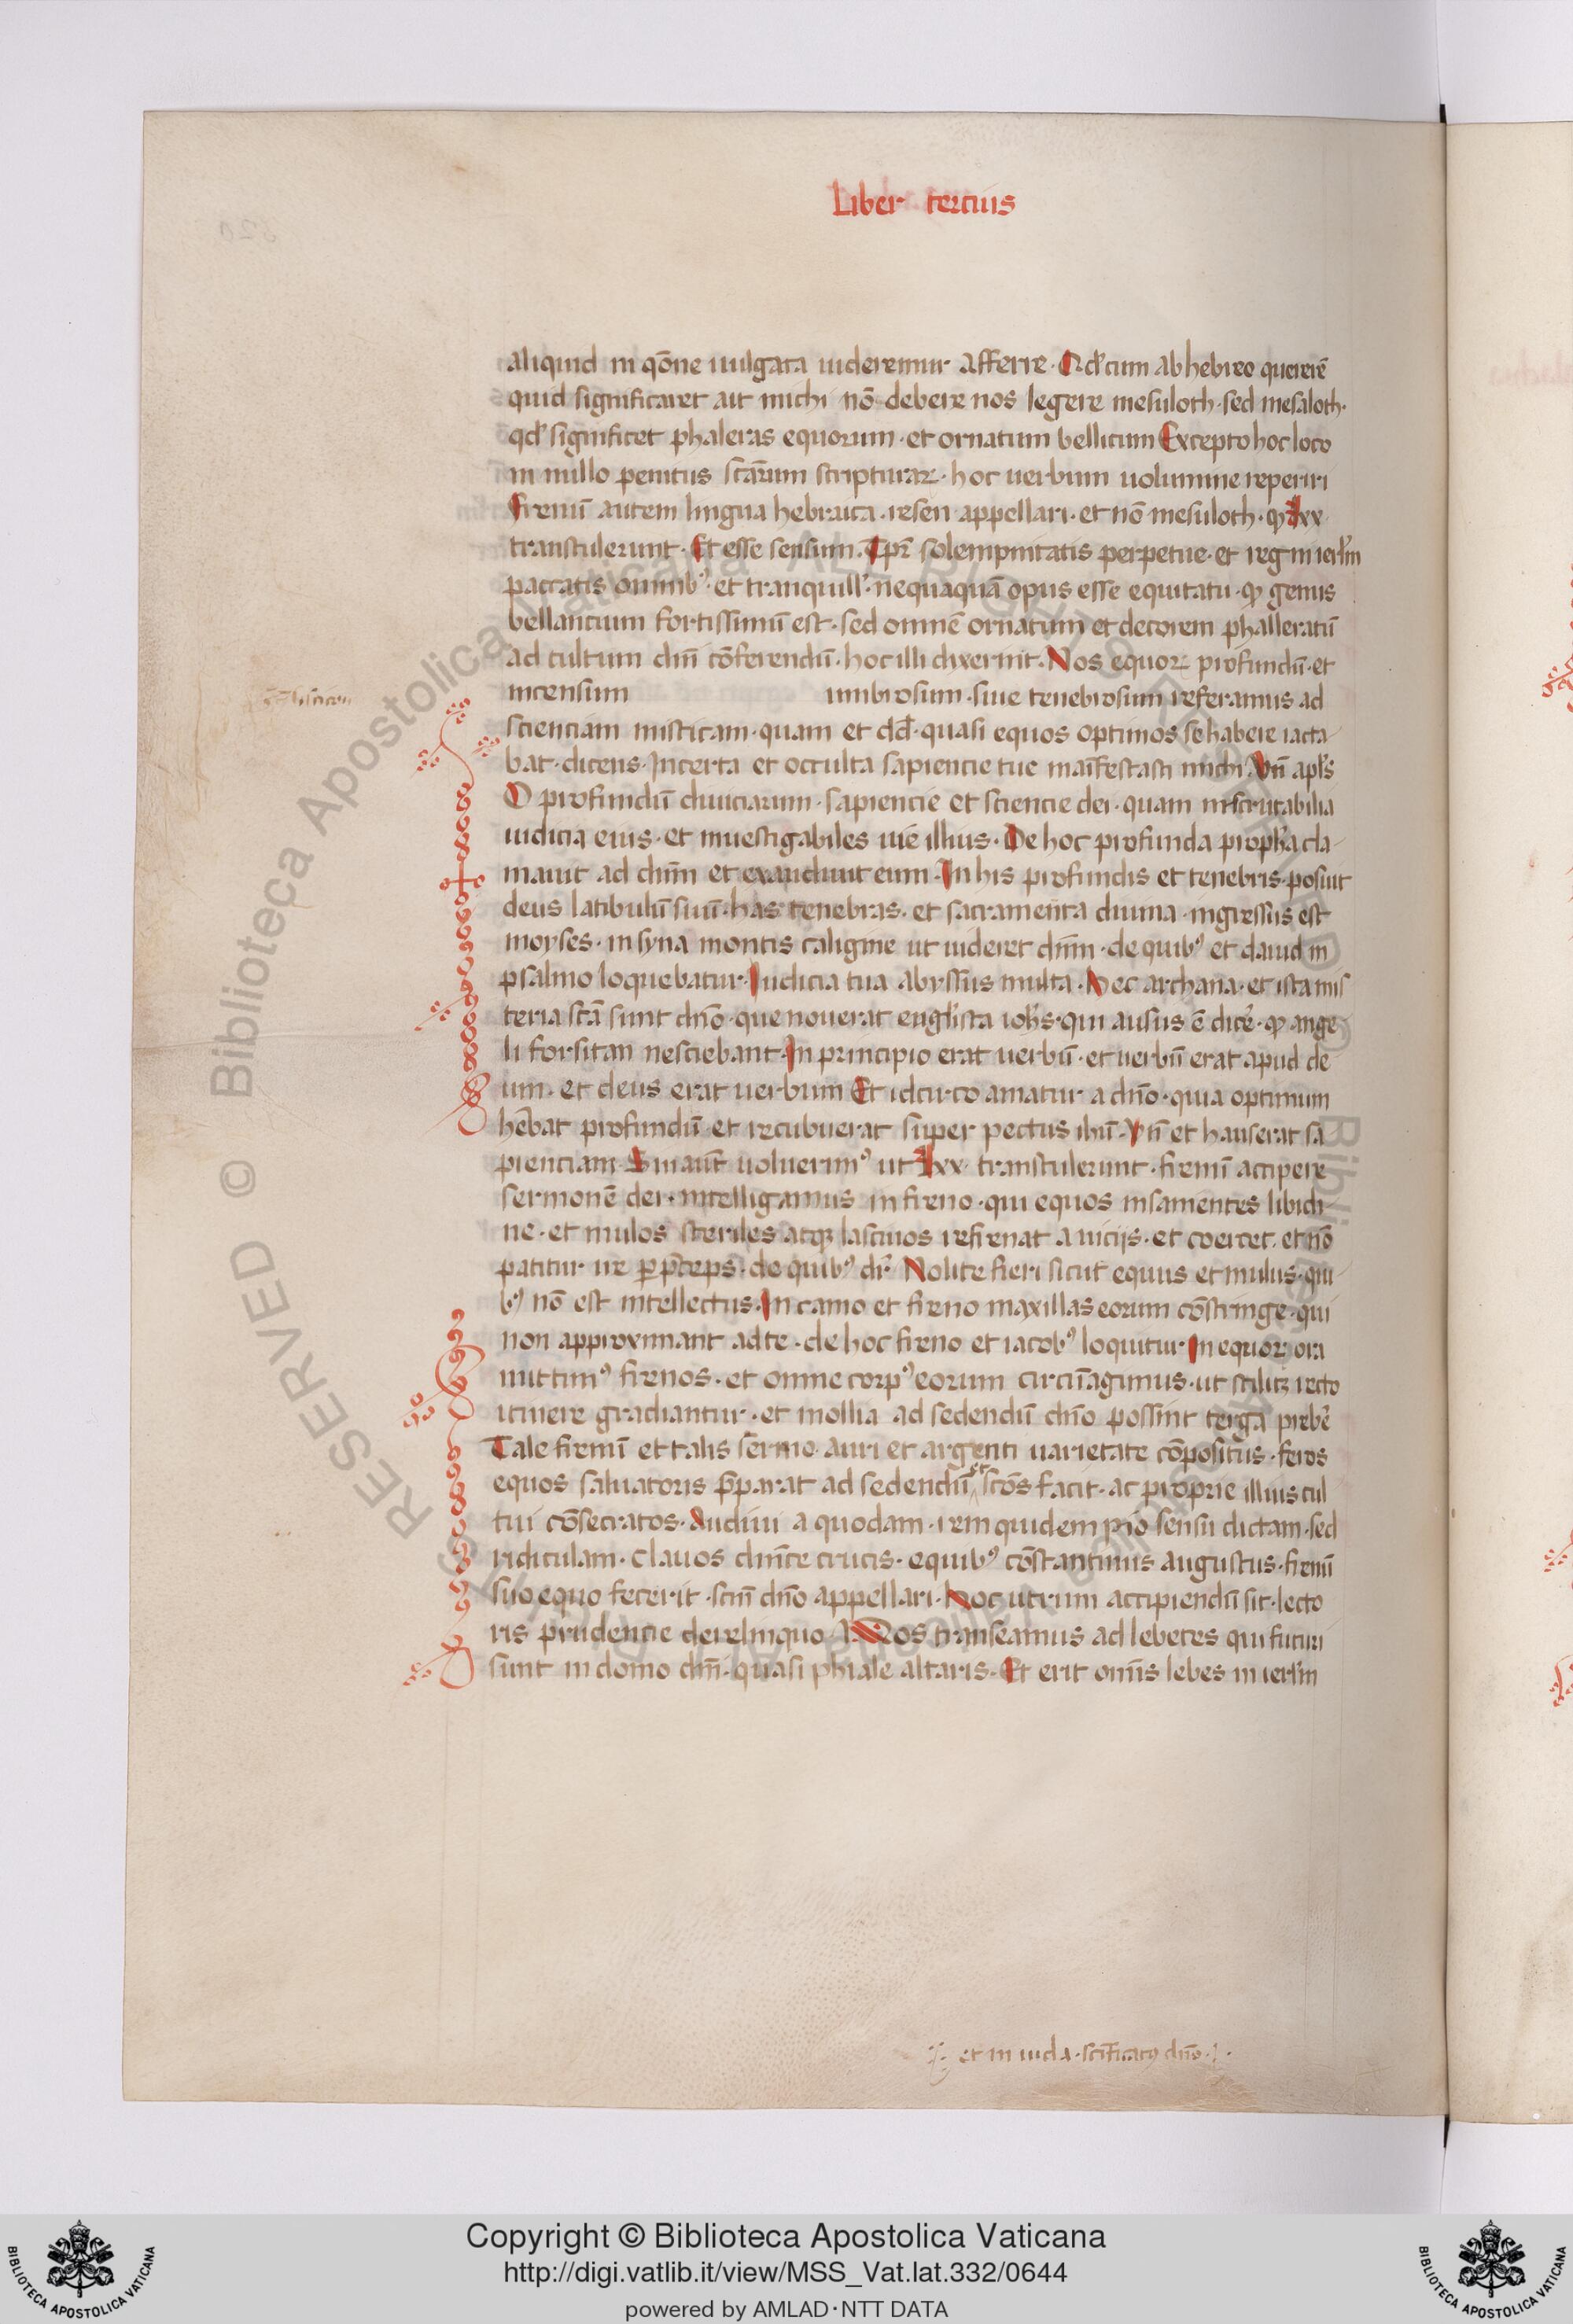 Liber tercius
aliquid in qōne uulgata uideremur afferre. Qd' cum ab hebreo quererē
quid significaret ait michi nō debere nos legere mesuloth. sed mesaloth.
qd' significet phaleras equorum. et ornatum bellicum Excepto hoc loco
in nullo penitus scārum scripturaꝝ. hoc uerbum uolumine reperiri
Frenū autem lingua hebraica. resen appellari. et nō mesuloth. qꝫ lxx
transtulerunt. Et esse sensum. Tp̄r solempnitatis perpetue. et reg in ierl'm
paccatis omnibꝰ. et tranquill'. nequaquā opus esse equitatu. qꝫ genus
bellancium fortissimū est. sed omnē ornatum et decorem phalleratū
ad cultum dnī cōferendū. hoc illi dixerint. Nos equoꝝ profundū. et
incensum umbrosum. siue tenebrosum referamus ad
scienciam misticam. quam et dd̄. quasi equos optimos se habere iacta-
bat. dicens. Incerta et occulta sapiencie tue maīfestasti michi. Vn̄ apl's
O profundū diuiciarum. sapiencie et sciencie dei. quam inscrutabilia
iudicia eius. et inuestigabiles uie illius. De hoc profunda proph'a cla-
mauit ad dnm̄ et exaudiuit eum. In his profundis et tenebris. posuit
deus latibulū suū. has tenebras. et sacramenta diuina. ingressus est
moyses. in syna montis caligine ut uideret dnm̄. de quibꝰ et dauid in
psalmo loquebatur. Iudicia tua abyssus multa. Hec archana. et ista mis
teria scā sunt dnō. que nouerat eugl'ista ioh's. qui ausus ē dicē'. qꝫ ange-
li forsitan nesciebant. In principio erat uerbū. et uerbū erat apud de
um. et deus erat uerbum Et idcirco amatur a dnō. quia optimum
hēbat profundū. et recubuerat super pectus ihū. Vn̄ et hauserat sa
pienciam. Sin aut̄ uoluerimꝰ ut lxx. transtulerunt. frenū accipere
sermonē dei. intelligamus in freno. qui equos insanientes libidi-
ne. et mulos steriles atqꝫ lasciuos refrenat a uicijs. et coercet. et nō
patitur ire ꝑ p̄ceps. de quibꝰ dr̄. Nolite fieri sicut equus et mulus. qui-
bꝰ nō est intellectus. In camo et freno maxillas eorum cōstringe. qui
non approximant ad te. de hoc freno et iacobꝰ loquitur. In equoꝝ ora
mittimꝰ frenos. et omne corpꝰ eorum circūagimus. ut scilicꝫ recto
itinere gradiantur. et mollia ad sedendū dnō possint terga prebē'
Tale frenū et talis sermo. auri et argenti uarietate cōpositus. feros
equos saluatoris p̄parat ad sedendū et scōs facit. ac proprie illius cul
tui cōsecratos. Audiui a quodam. rem quidem pio sensu dictam. sed
ridiculam. Clauos dnīce crucis. e quibꝰ cōstantinus augustus. frenū
suo equo fecerit. scm̄ dnō appellari. Hoc utrum accipiendū sit. lecto
ris prudencie derelinquo. Nos transeamus ad lebetes qui futuri
sunt in domo dnī. quasi phiale altaris. Et erit omīs lebes in ierl'm
et in iuda. scīficatꝰ dnō.
Copyright © Biblioteca Apostolica Vaticana
http://digi.vatlib.it/view/MSS_Vat.lat.332/0644
powered by AMLAD·NTT DATA
BIBLIOTECA APOSTOLICA VATICANA
BIBLIOTECA APOSTOLICA VATICANA